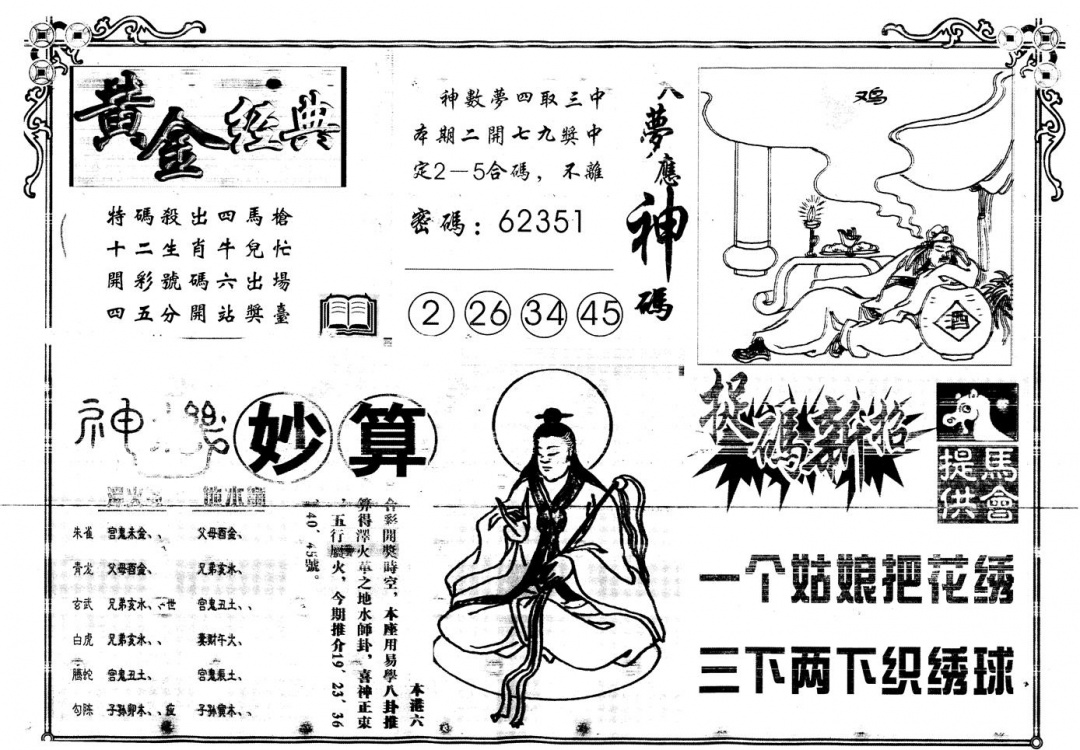 黃金經典
特碼殺出四馬槍
十二生肖牛兒忙
開彩號碼六出場
四五分開站獎臺
神數夢四取三中
本期二開七九獎中
定2—5合碼，不離
密碼：62351
2 26 34 45
八夢應神碼
鸡
酒
神 妙算
朱雀 官鬼未金、、 父母酉金、
青龙 父母酉金、 兄弟亥水、、
玄武 兄弟亥水、、世 官鬼丑土、、
白虎 兄弟亥水、、 妻財午火、
螣蛇 官鬼丑土、、 官鬼辰土、、
勾陈 子孙卯木、、应 子孙寅木、、
本港六
合彩開獎時空，本座用易學八卦推
算得澤火革之地水師卦，喜神正東
，五行屬火，今期推介19、23、36
、40、45號。
捉碼新招
馬會
提供
一个姑娘把花绣
三下两下织绣球